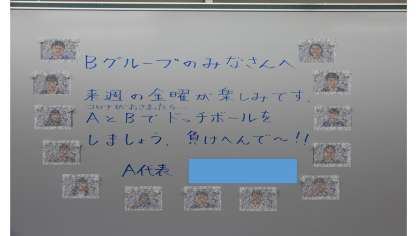 Bグループのみなさんへ
来週の金曜が楽しみです。
コロナがおさまったら…
AとBでドッチボールを
しましょう。負けへんで〜!!
A代表